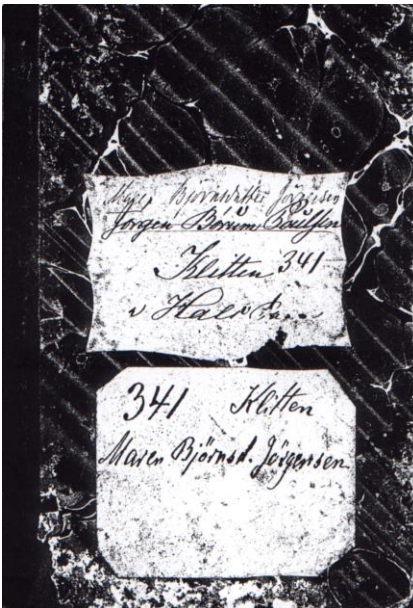 Björnsdatter Jörgensen
Jörgen Börum
Klitten 341
v Hals
341 Klitten
Maren Björnsd. Jörgensen